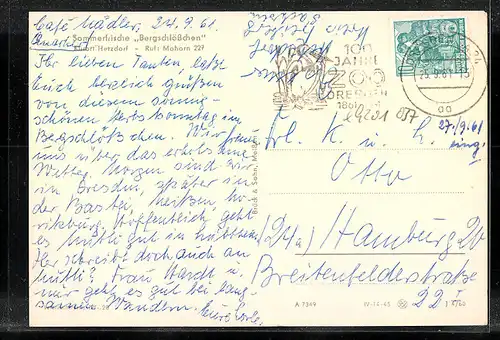 Café Mädler, 24.9.61.
Sommerfrische „Bergschlößchen"
Kurort Hetzdorf - Ruf: Mohorn 227
Ihr lieben Tanten, laßt
Euch herzlich grüßen
von diesem sonnig-
schönen Herbstsonntag im
Bergschlößchen. Wir freuen
uns über das erholsame
Wetter. Morgen sind wir
in Dresden, später in
der Bastei, Meißen, Mo-
ritzburg. Hoffentlich geht
es Mutti gut in
Ihr schreibt doch auch an
Mutti? Frau u.
mir geht es gut bei lang-
samen Wandern.
Brück & Sohn, Meißen
100
JAHRE
ZOO
DRESDEN
1861
25.9.61
27./9.61
Frl. K. u. H.
Otto
(24a) Hamburg 26
Breitenfelderstraße
22 I
A 7349